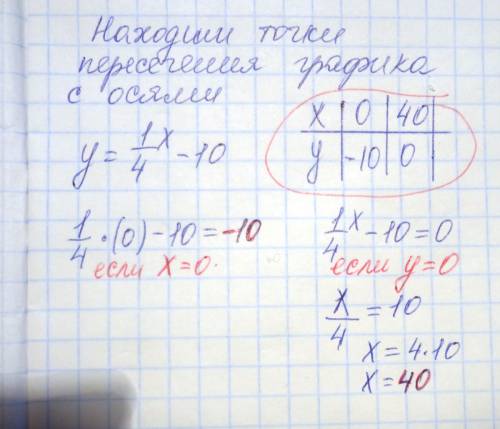 Находим точки
пересечения графика
с осями
x | 0 | 40
y | -10 | 0
y = 1/4 x - 10
1/4 · (0) - 10 = -10
если x = 0.
1/4 x - 10 = 0
если y = 0
x/4 = 10
x = 4 · 10
x = 40